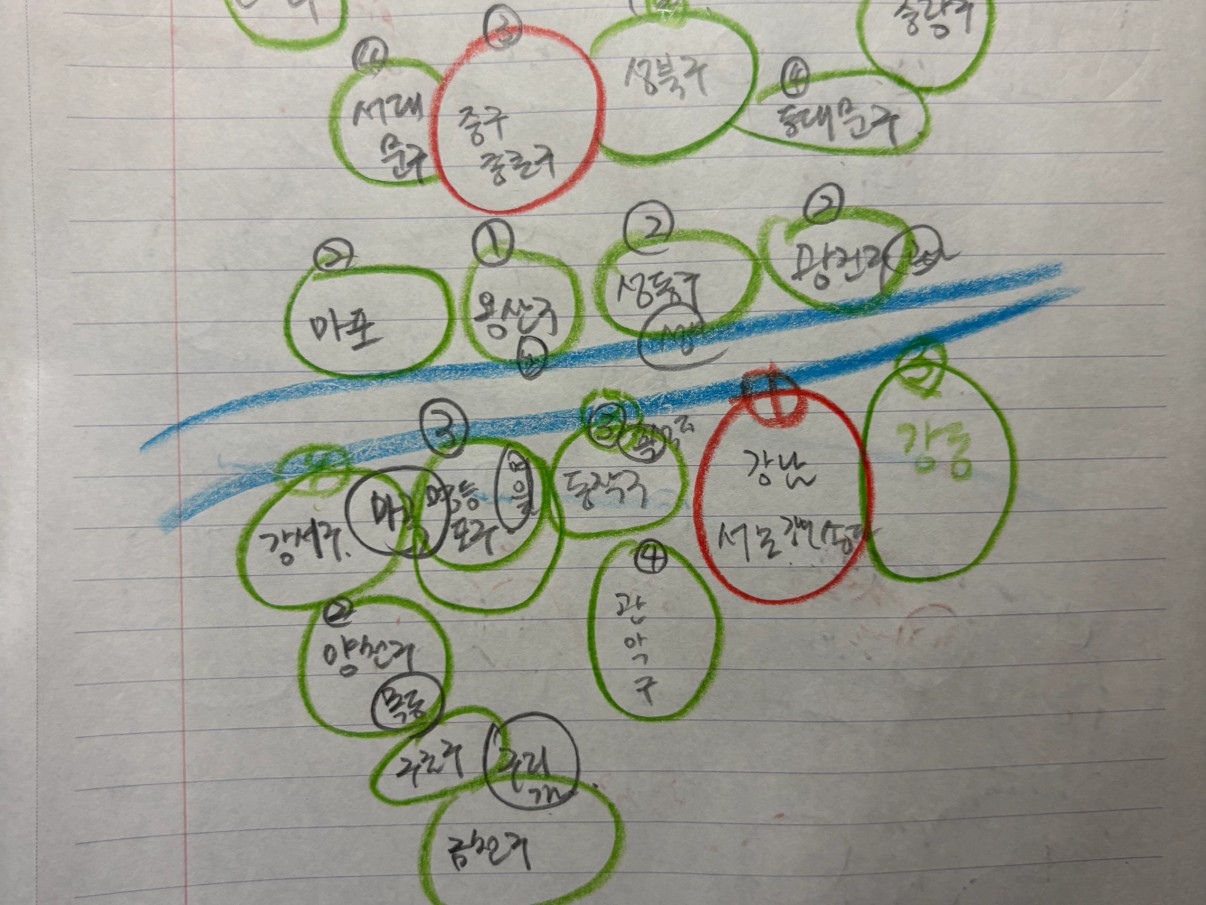 중랑구
④
서대
문구
③
중구
종로구
성북구
④
동대문구
②
마포
①
용산구
②
성동구
②
광진구
③
강서구
마곡
영등
포구
③
동작구
①
강남
서초 강남 송파
강동
④
관
악
구
②
양천구
목동
구로구
금천구